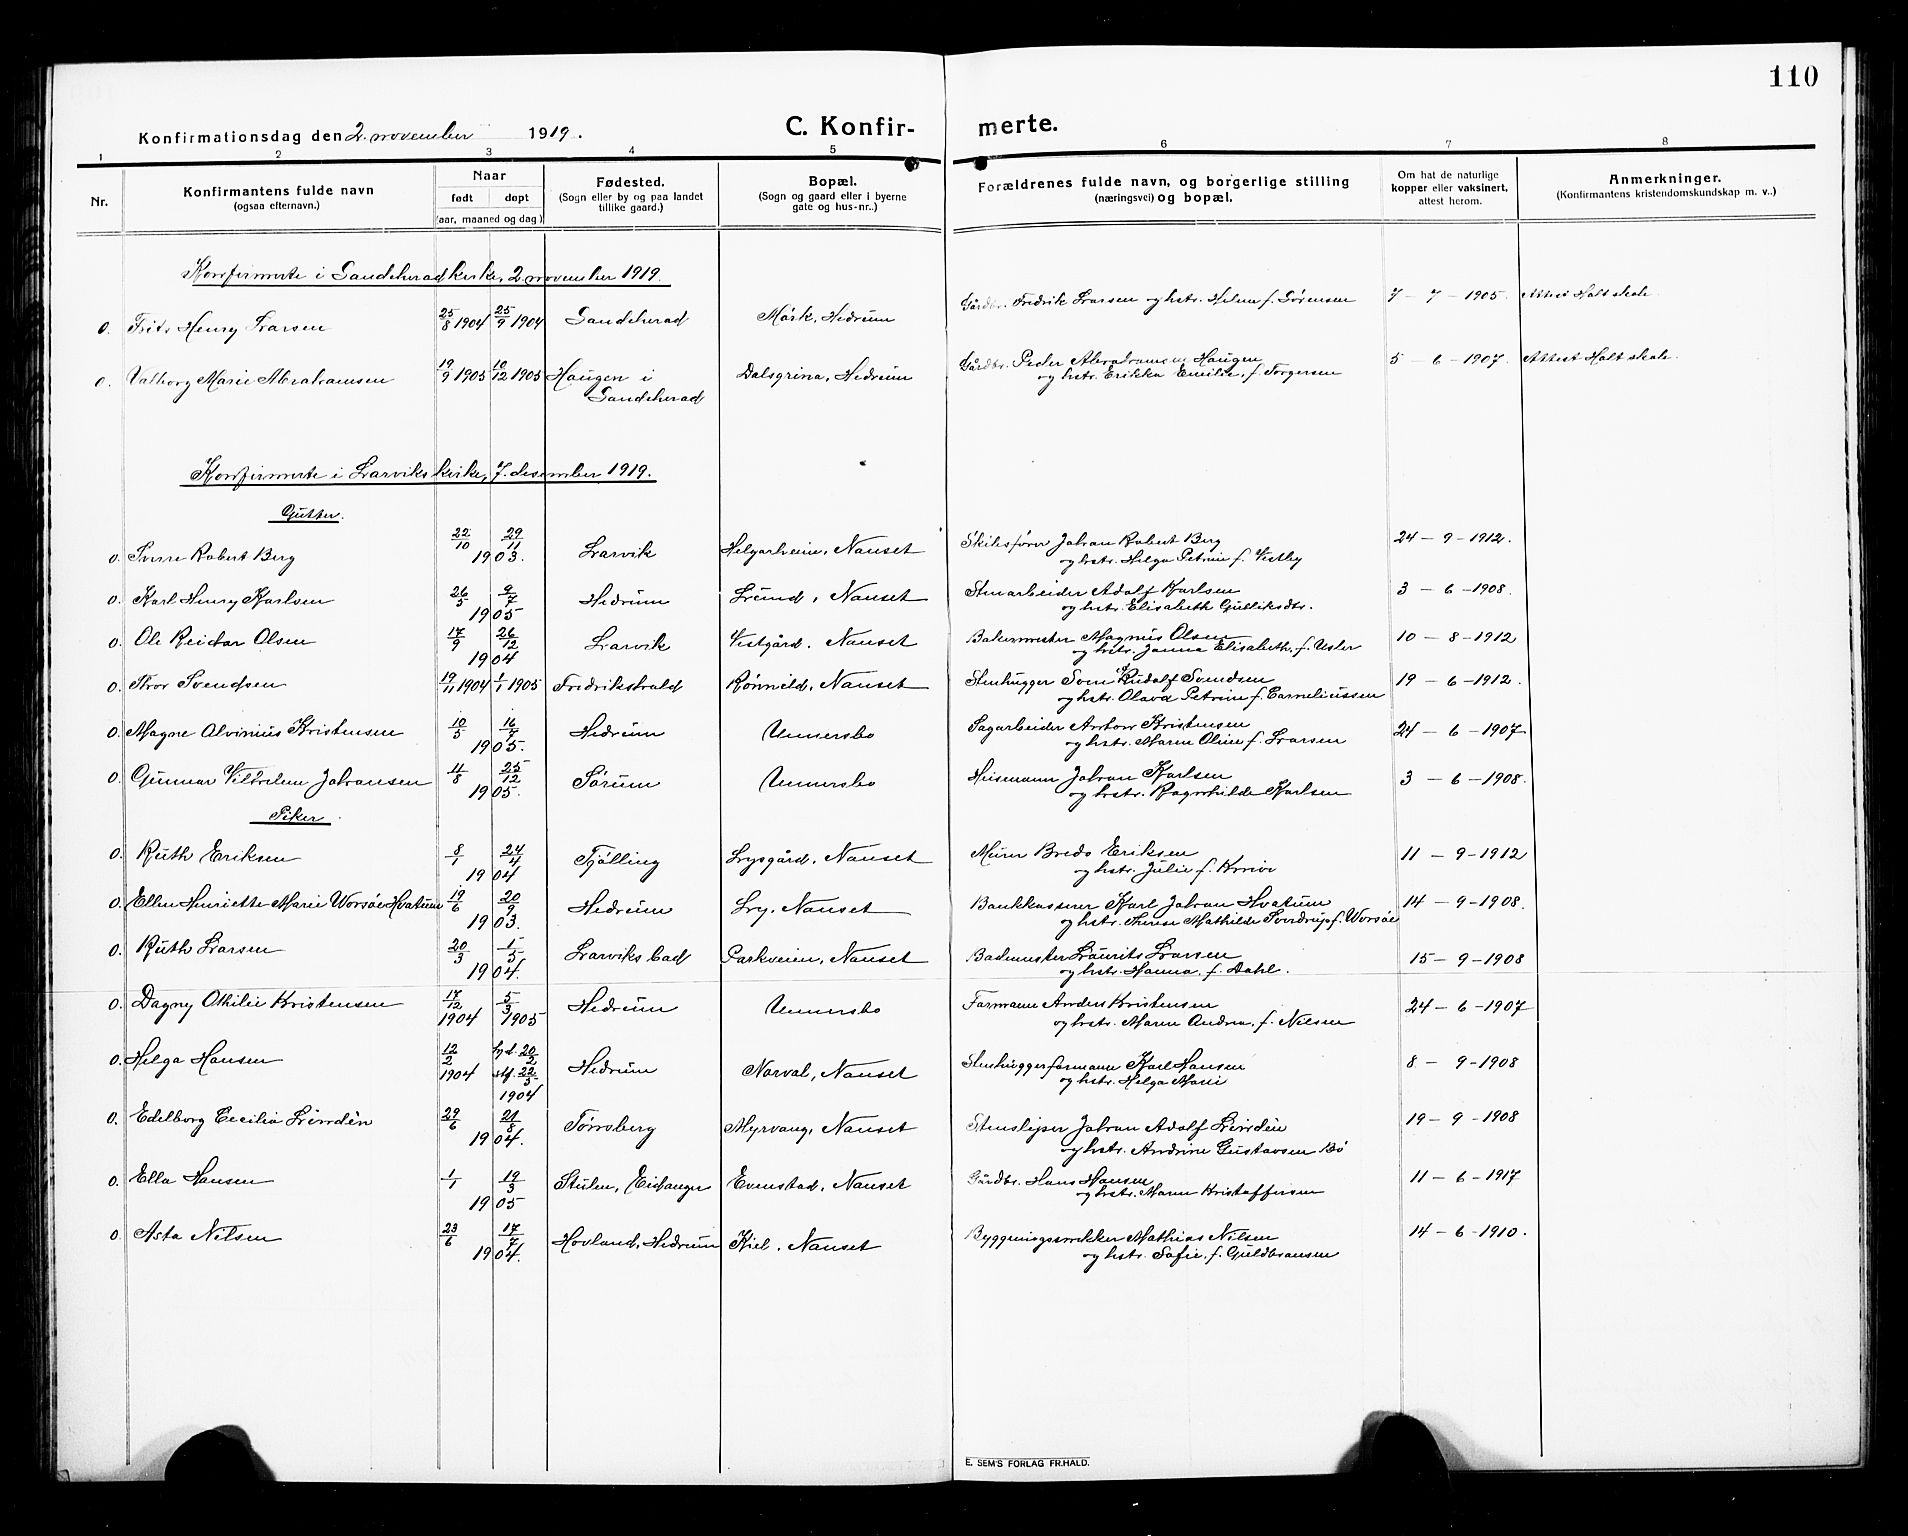 110
Konfirmationsdag den 2. november 1919.
C. Konfir- merte.
1 2 3 4 5 6 7 8
Nr.
Konfirmantens fulde navn
(ogsaa efternavn.)
Naar
født døpt
(aar, maaned og dag)
Fødested.
(Sogn eller by og paa landet
tillike gaard.)
Bopæl.
(Sogn og gaard eller i byerne
gate og hus-nr..)
Forældrenes fulde navn, og borgerlige stilling
(næringsvei) og bopæl.
Om hat de naturlige
kopper eller vaksinert,
attest herom.
Anmerkninger.
(Konfirmantens kristendomskundskap m. v..)
Konfirmerte i Sandeherad kirke, 2. november 1919.
0. Henry Larsen 25/8 1904 25/9 1904 Sandeherad Mørk, Hedrum Gårdbr. Fredrik Larsen og hstr. Helene f. Sørensen 7 - 7 - 1905. Attest Holt skole.
0. Valborg Marie Abrahamsen 19/9 1905 10/12 1905 Haugen i Dalsgrina, Hedrum Gårdbr. Peder Abrahamsen Haugen 5 - 6 - 1907. Attest Holt skole
Sandeherad og hstr. Erikka Emilie, f. Torgersen
Konfirmerte i Larviks kirke, 7. desember 1919.
Gutter.
0. Sverre Robert Berg 22/10 29/11 Larvik Helgarheim, Nanset Skibsfører Johan Robert Berg 24 - 9 - 1912.
1903. og hstr. Helga Petrine f. Vestby
0. Karl Henry Karlsen 26/5 9/7 Hedrum Lund, Nanset Stenarbeider Adolf Karlsen 3 - 6 - 1908.
1905 og hstr. Elisabeth Gulliksdtr.
0. Ole Reidar Olsen 17/9 26/12 Larvik Vestgård, Nanset Bakermester Magnus Olsen 10 - 8 - 1912
1904 og hstr. Janna Elisabeth, f. Usler
0. Thor Svendsen 19/11 1904 1/1 1905 Fredrikshald Rønneld, Nanset Stenhugger Sven Rudolf Svendsen 19 - 6 - 1912.
og hstr. Olava Petrine f. Corneliussen
0. Magne Alvinius Kristensen 10/5 16/7 Hedrum Unnersbo Sagarbeider Anton Kristensen 24 - 6 - 1907
1905. og hstr. Maren Oline f. Larsen
0. Gunnar Vilhelm Johansen 11/8 25/12 Sørum Unnersbo Heismann Johan Karlsen 3 - 6 - 1908.
1905. og hstr. Ragnhilde Karlsen
Piker.
0. Ruth Eriksen 8/1 24/4 Tjølling Lysgård, Nanset Murer Bredo Eriksen 11 - 9 - 1912
1904 og hstr. Julie f.
0. Ellen Henriette Marie Worsøe Hvatum 19/6 20/9 Hedrum Ly, Nanset Bankkasserer Karl Johan Hvatum 14 - 9 - 1908.
1903. og hstr. Therese Mathilde Sverdrup f. Worsøe
0. Ruth Larsen 20/3 1/5 Larviks bad Parkveien, Nanset Bademester Laurits Larsen 15 - 9 - 1908
1904. og hstr. Hanna, f. Dahl.
0. Dagny Othilie Kristensen 17/12 5/3 Hedrum Unnersbo Formann Anders Kristensen 24 - 6 - 1907
1904 1905 og hstr. Maren Andrea, f. Nilsen
0. Helga Hansen 12/2 hjd. 20/2 Hedrum Norval, Nanset Stenhuggerformann Karl Hansen 8 - 9 - 1908
1904 stf. 22/5 og hstr. Helga Marie
1904
0. Edelborg Cecilia Lindén 29/6 21/8 Tønsberg Myrvang, Nanset Stensliper Johan Adolf Lindén 19 - 9 - 1908
1904. og hstr. Andrine Gustavsen Bö
0. Ella Hansen 1/1 19/3 Stulen, Eidanger Evenstad, Nanset Gårdbr. Hans Hansen 11 - 6 - 1917
1905 og hstr. Maren Kristoffersen
0. Asta Nilsen 23/6 17/7 Hovland, Hedrum Kiel, Nanset Bygningssnekker Mathias Nilsen 14 - 6 - 1910.
1904. og hstr. Sofie, f. Guldbransen
E. SEM'S FORLAG FR.HALD.